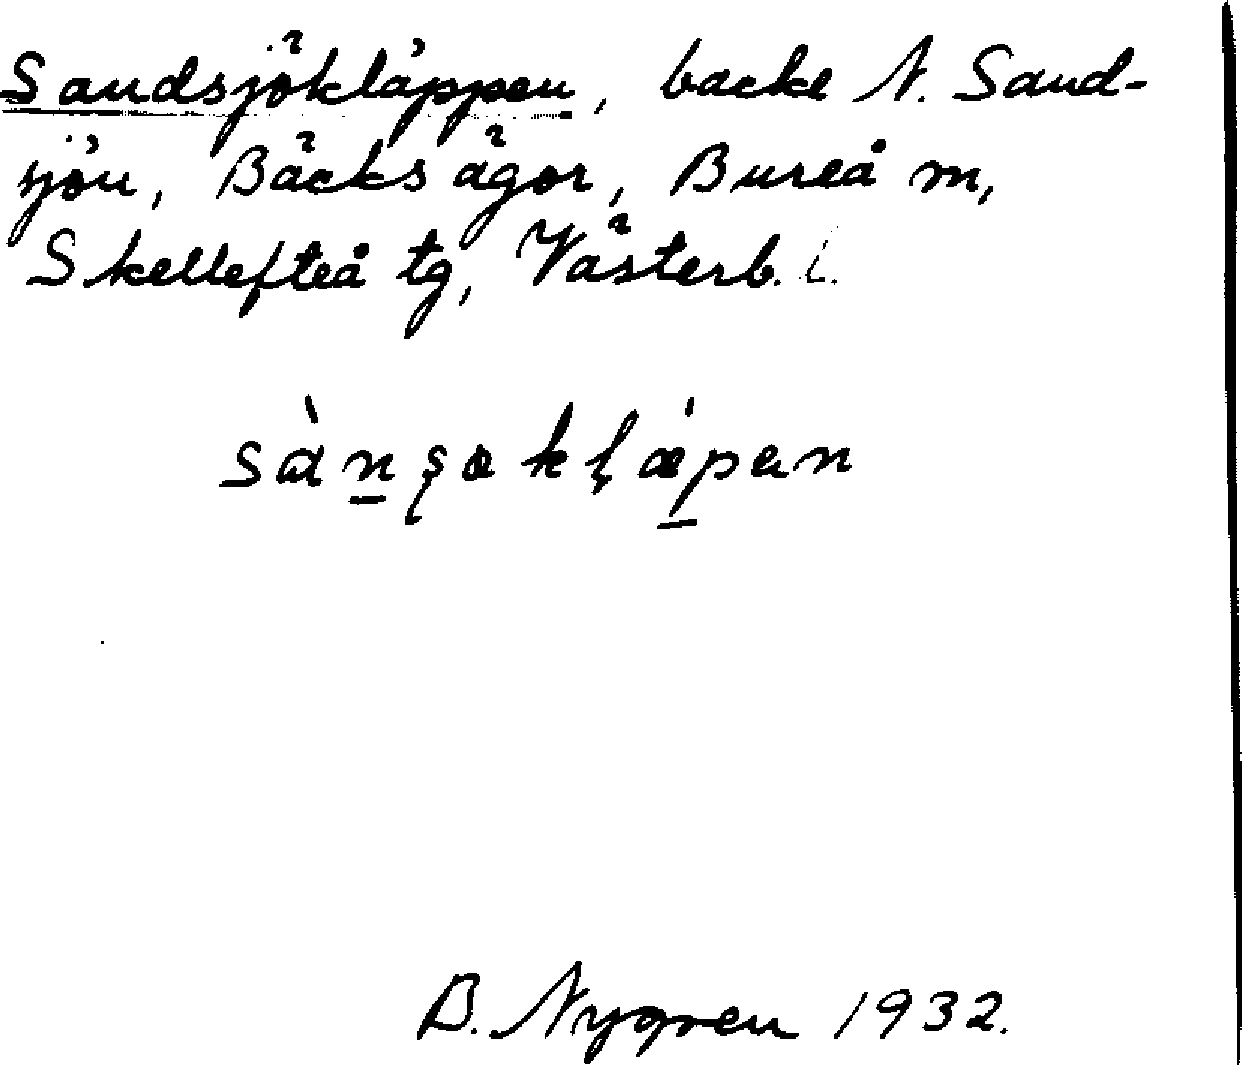 Sandsjökläppen, backe N. Sand-
sjön, Bäcks ägor, Bureå sn,
Skellefteå tg, Västerb. l.
B. Nygren 1932.